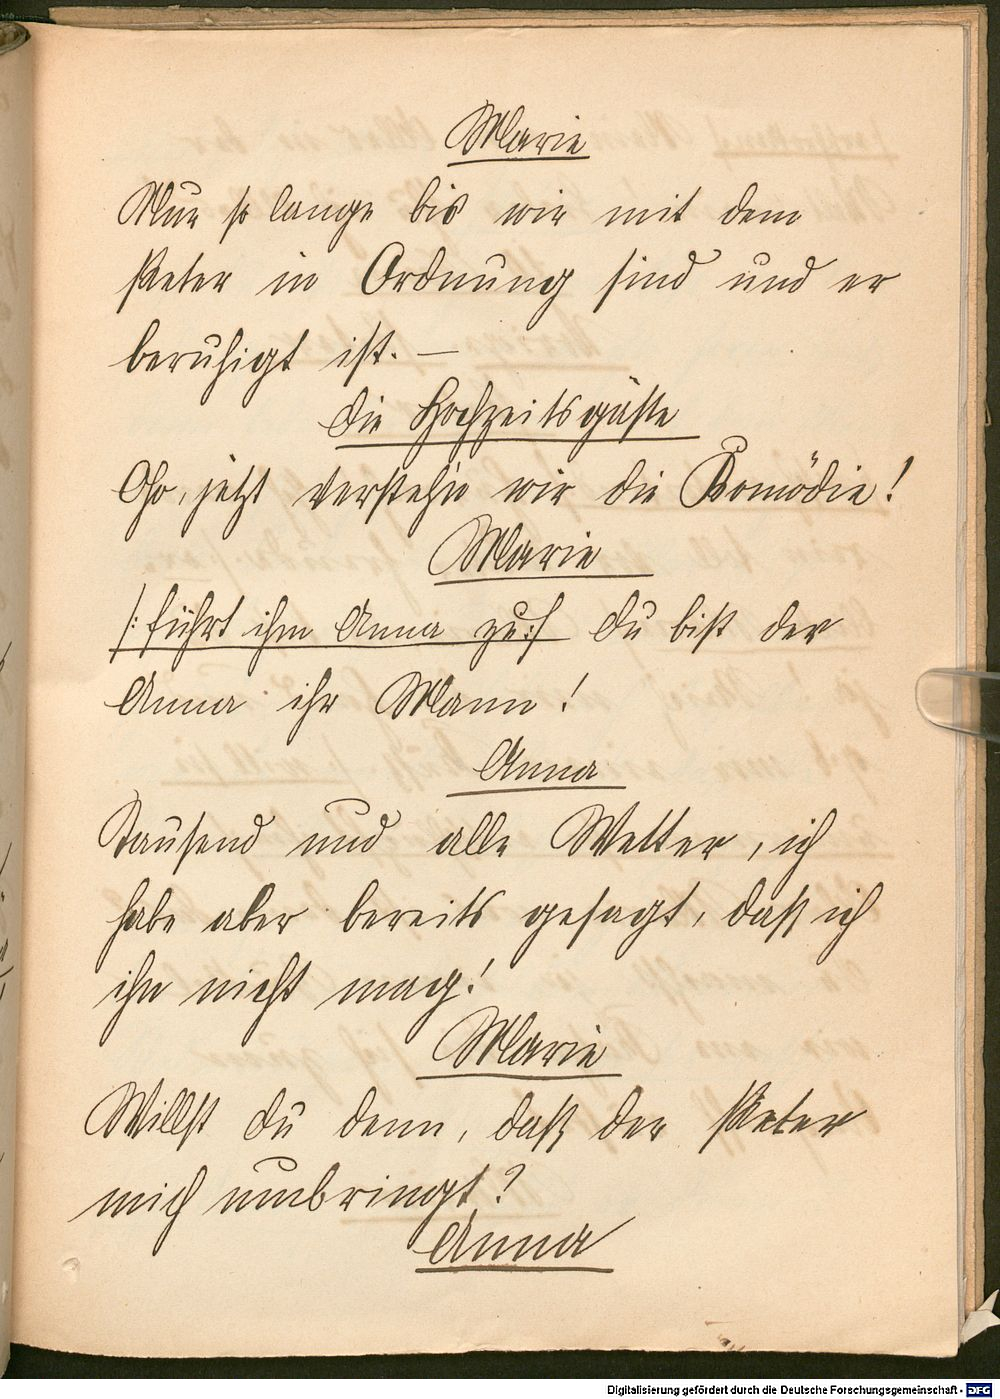 Marie
Nur so lange bis wir mit dem
Peter in Ordnung sind und er
beruhigt ist. —
Die Hochzeitsgäste
Oho, jetzt versteh'n wir die Komödie!
Marie
/: führt ihm Anna zu :/ Du bist der
Anna ihr Mann!
Anna
Tausend und alle Wetter, ich
habe aber bereits gesagt, daß ich
ihn nicht mag!
Marie
Willst du denn, daß der Peter
mich umbringt?
Anna
Digitalisierung gefördert durch die Deutsche Forschungsgemeinschaft - DFG